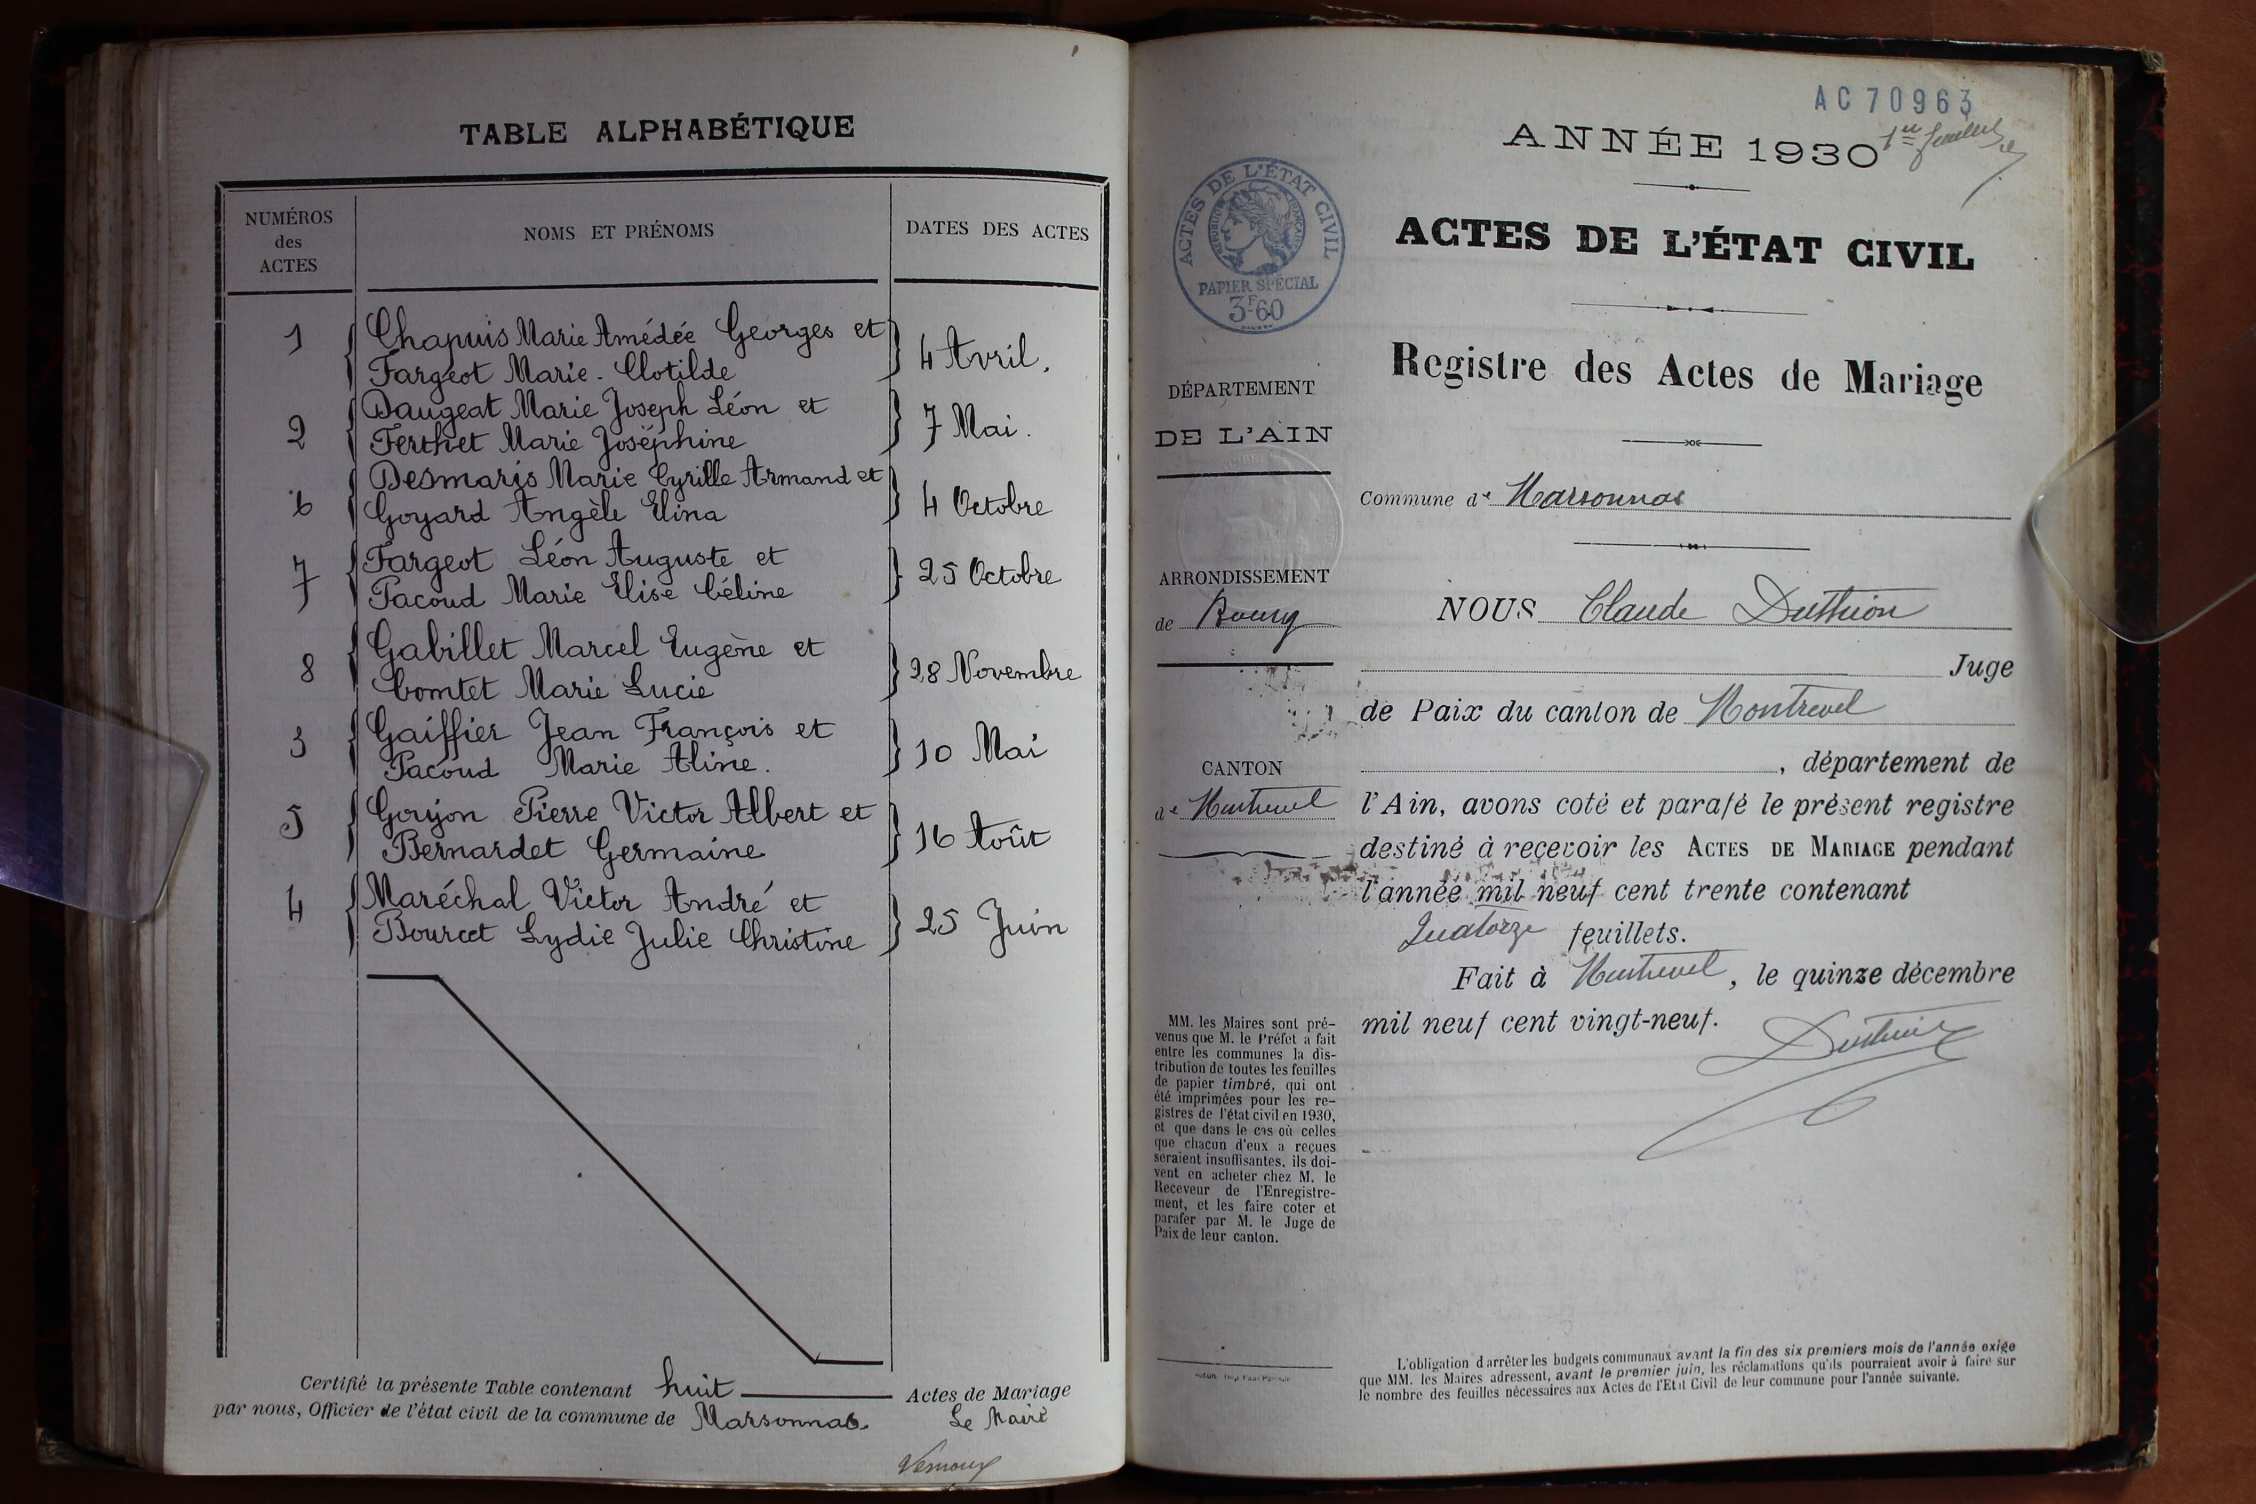 TABLE ALPHABÉTIQUE
NUMÉROS
des
ACTES
NOMS ET PRÉNOMS
DATES DES ACTES
1
Chapuis Marie Amédée Georges et
Fargeot Marie-Clotilde
4 Avril.
2
Daugeat Marie Joseph Léon et
Ferthet Marie Joséphine
7 Mai.
6
Desmaris Marie Cyrille Armand et
Goyard Angèle Elina
4 Octobre
7
Fargeot Léon Auguste et
Pacoud Marie Elise Céline
25 Octobre
8
Gabillet Marcel Eugène et
Comtet Marie Lucie
28 Novembre
3
Gaiffier Jean François et
Pacoud Marie Aline.
10 Mai
5
Goujon Pierre Victor Albert et
Bernardet Germaine
16 Août
4
Maréchal Victor André et
Bourcet Lydie Julie Christine
25 Juin
Certifié la présente Table contenant huit Actes de Mariage
par nous, Officier de l'état civil de la commune de Marsonnas
Le Maire
AC 70963
ANNÉE 1930
ACTES DE L'ÉTAT CIVIL
RÉPUBLIQUE FRANÇAISE
PAPIER SPÉCIAL
3F60
ACTES DE L'ÉTAT CIVIL
Registre des Actes de Mariage
DÉPARTEMENT
DE L'AIN
ARRONDISSEMENT
de Bourg
CANTON
de Montrevel
Commune de Marsonnas
NOUS Claude Duthion
Juge
de Paix du canton de Montrevel
, département de
l'Ain, avons coté et parafé le présent registre
destiné à recevoir les ACTES DE MARIAGE pendant
l'année mil neuf cent trente contenant
Quatorze feuillets.
Fait à Montrevel, le quinze décembre
mil neuf cent vingt-neuf.
MM. les Maires sont pré-
venus que M. le Préfet a fait
entre les communes la dis-
tribution de toutes les feuilles
de papier timbré, qui ont
été imprimées pour les re-
gistres de l'état civil en 1930,
et que dans le cas où celles
que chacun d'eux a reçues
seraient insuffisantes, ils doi-
vent en acheter chez M. le
Receveur de l'Enregistre-
ment, et les faire coter et
parafer par M. le Juge de
Paix de leur canton.
L'obligation d'arrêter les budgets communaux avant la fin des six premiers mois de l'année exige
que MM. les Maires adressent, avant le premier juin, les réclamations qu'ils pourraient avoir à faire sur
le nombre des feuilles nécessaires aux Actes de l'Etat Civil de leur commune pour l'année suivante.